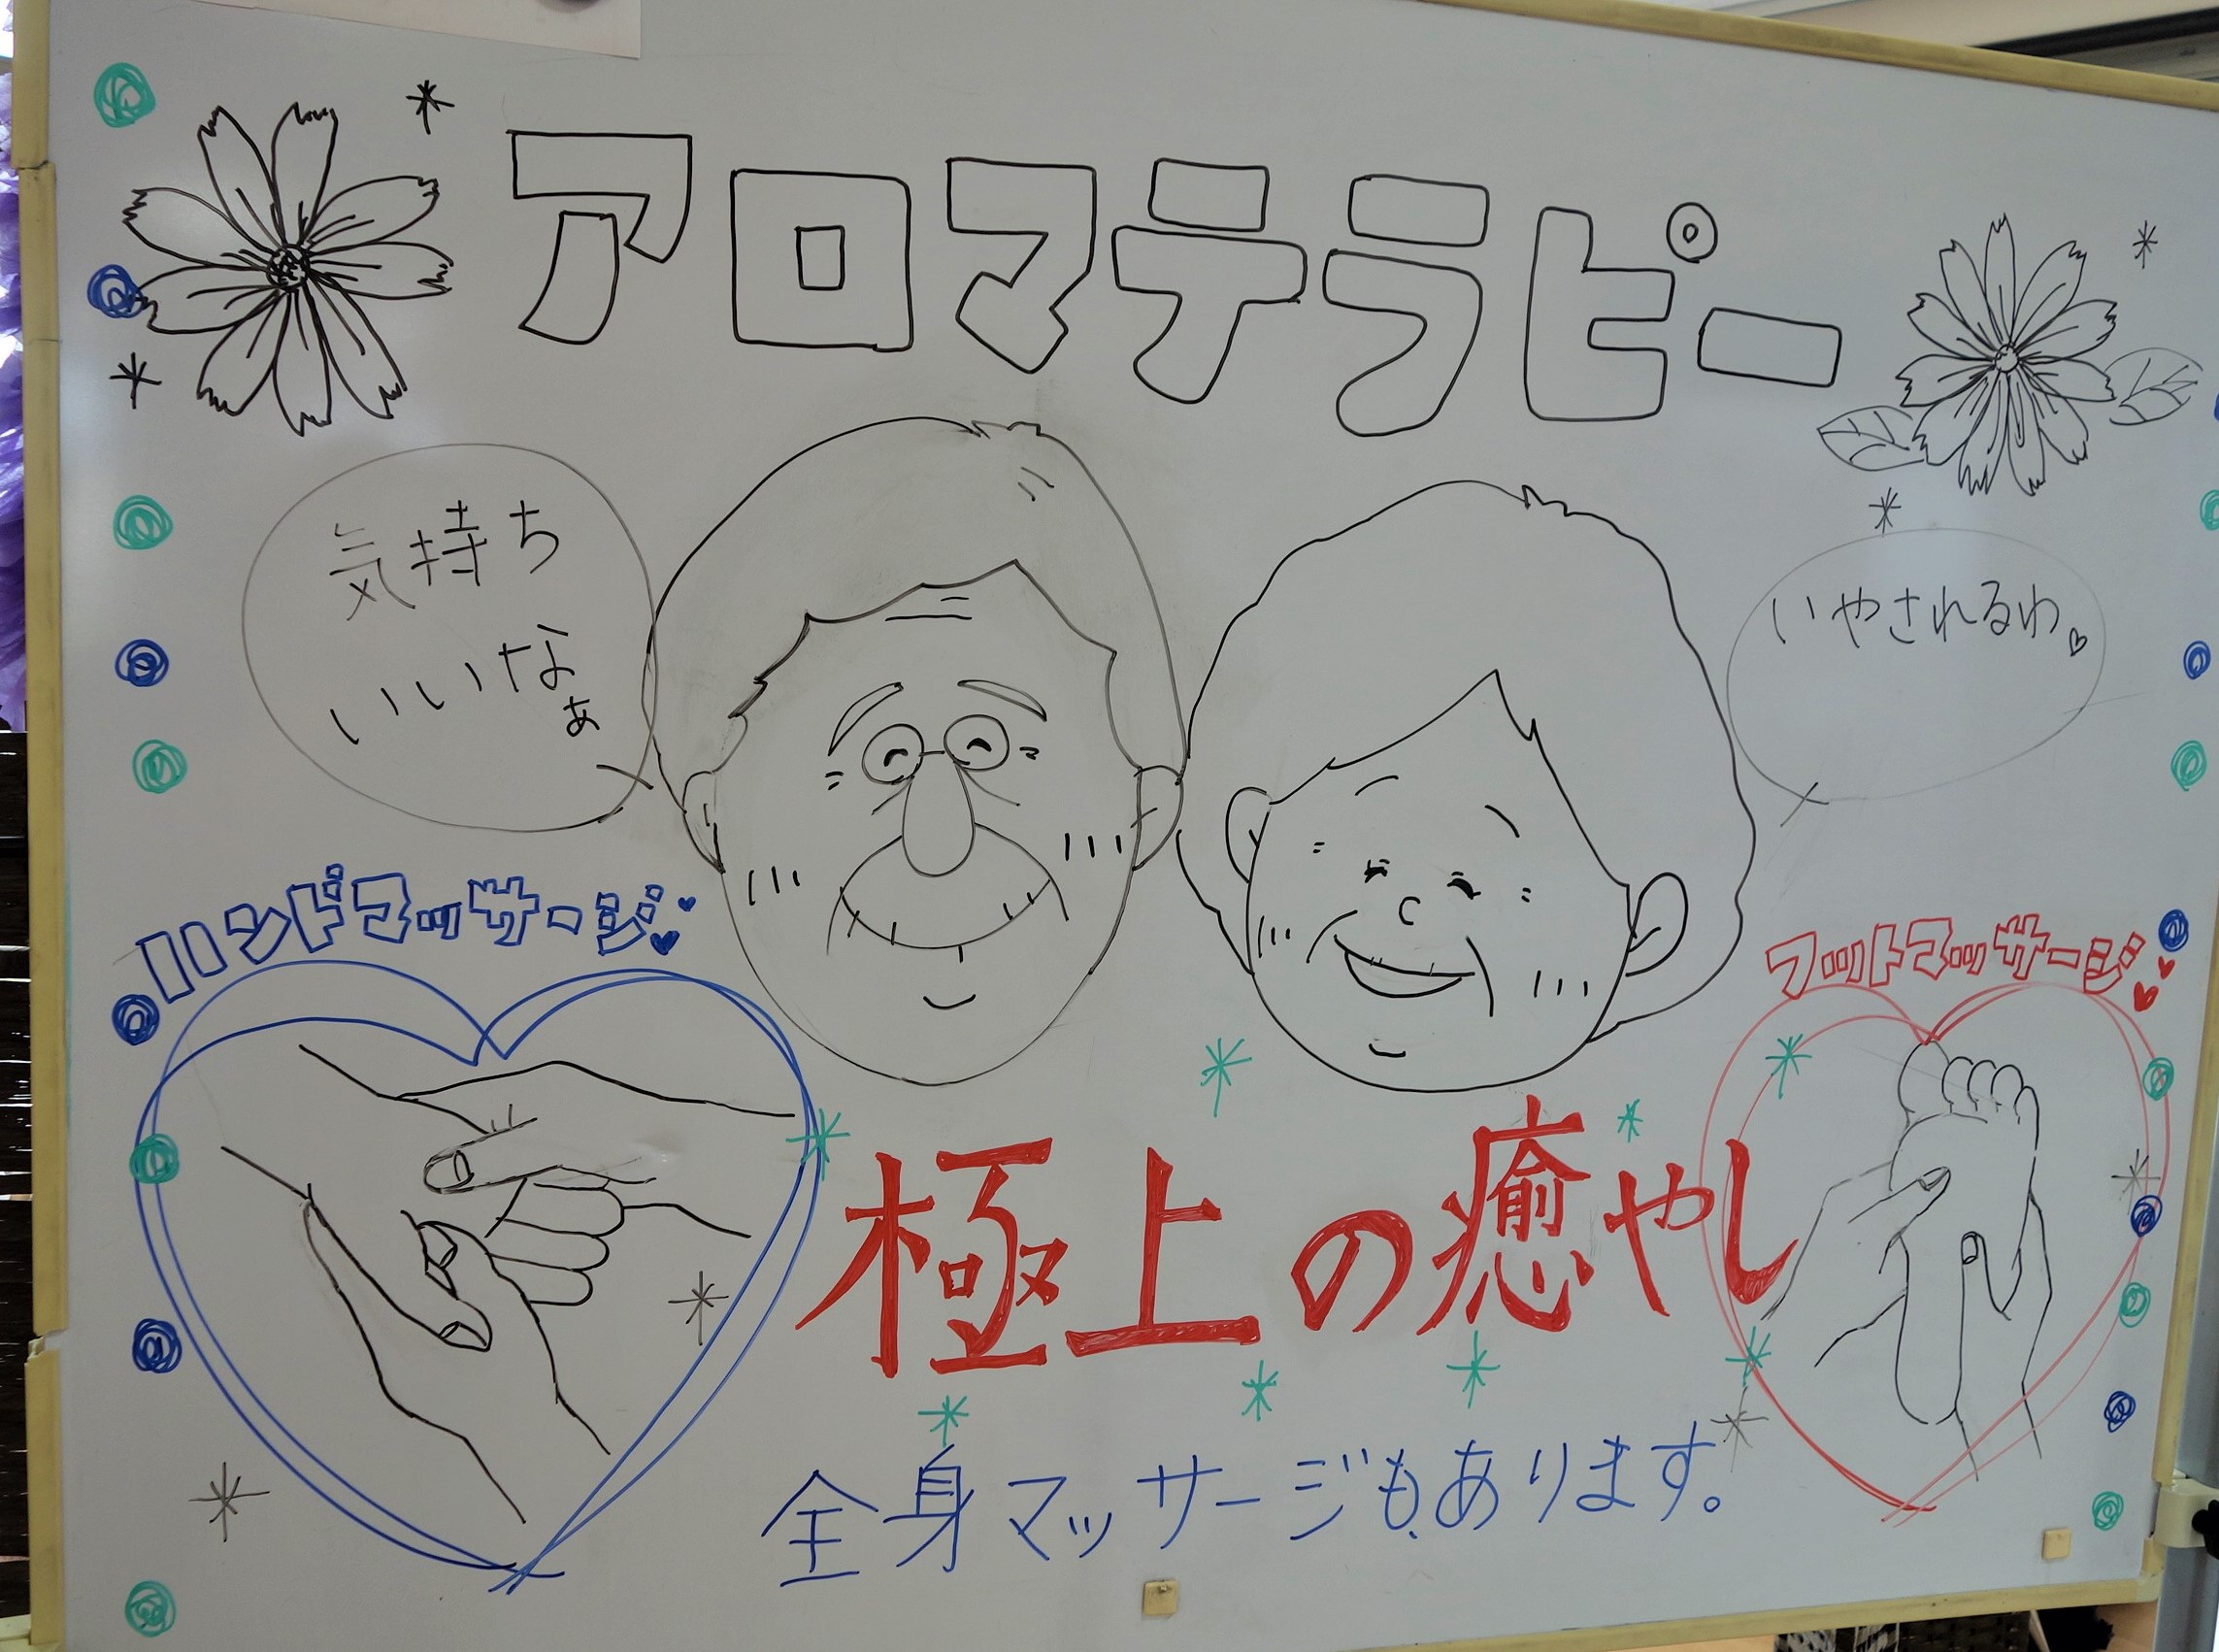 アロマテラピー
気持ち
いいなぁ
いやされるわ♡
ハンドマッサージ♥♥
フットマッサージ♥♥
極上の癒やし
全身マッサージも、あります。